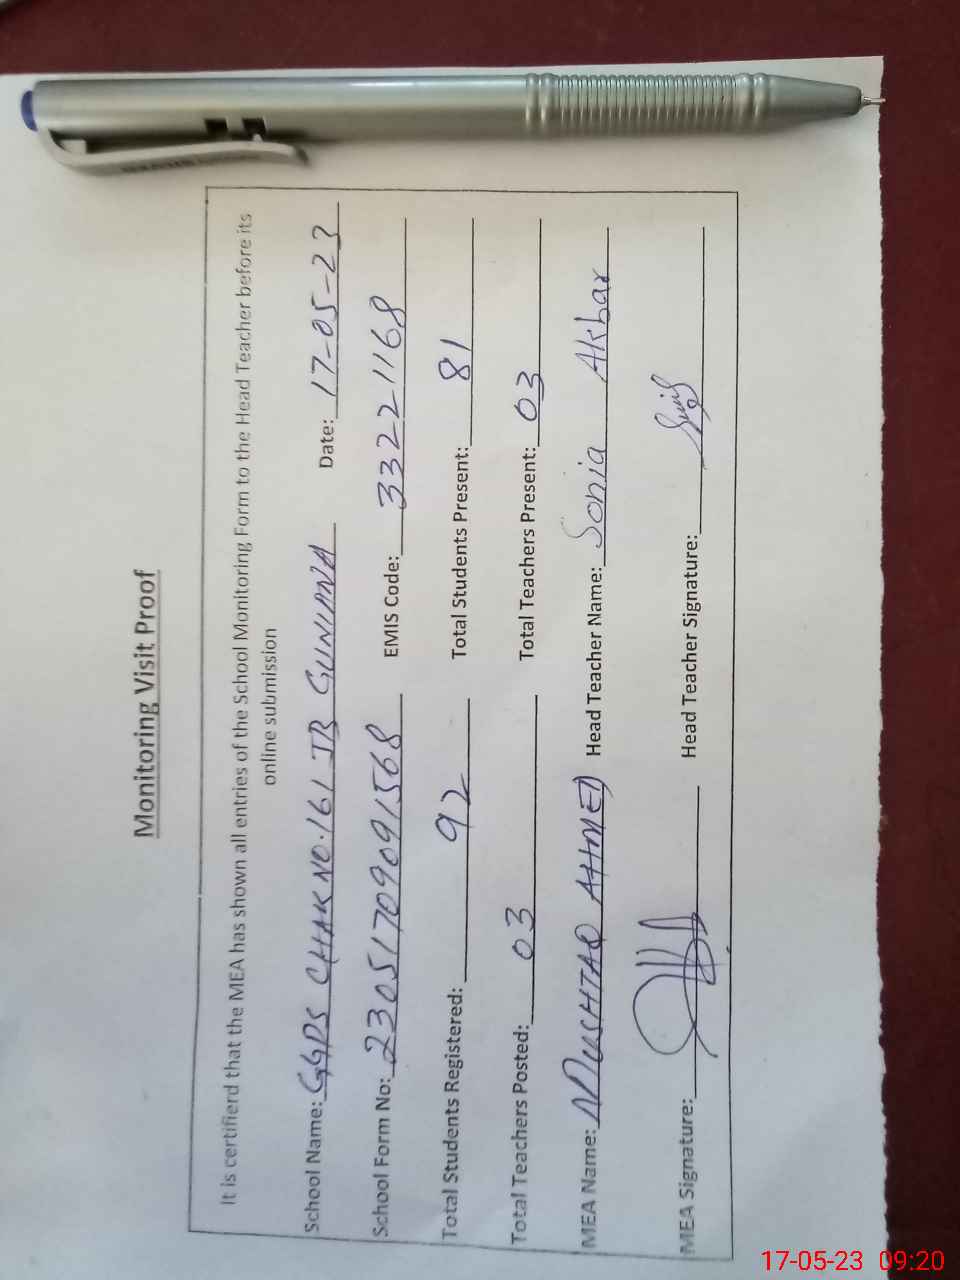 Monitoring Visit Proof
It is certifierd that the MEA has shown all entries of the School Monitoring Form to the Head Teacher before its
online submission
School Name: GGPS CHAK NO.161 JB GUNIANA Date: 17-05-23
School Form No: 23051709091568 EMIS Code: 33221168
Total Students Registered: 92 Total Students Present: 81
Total Teachers Posted: 03 Total Teachers Present: 03
MEA Name: MUSHTAQ AHMED Head Teacher Name: Sonia Akbar
MEA Signature: Head Teacher Signature:
17-05-23 09:20